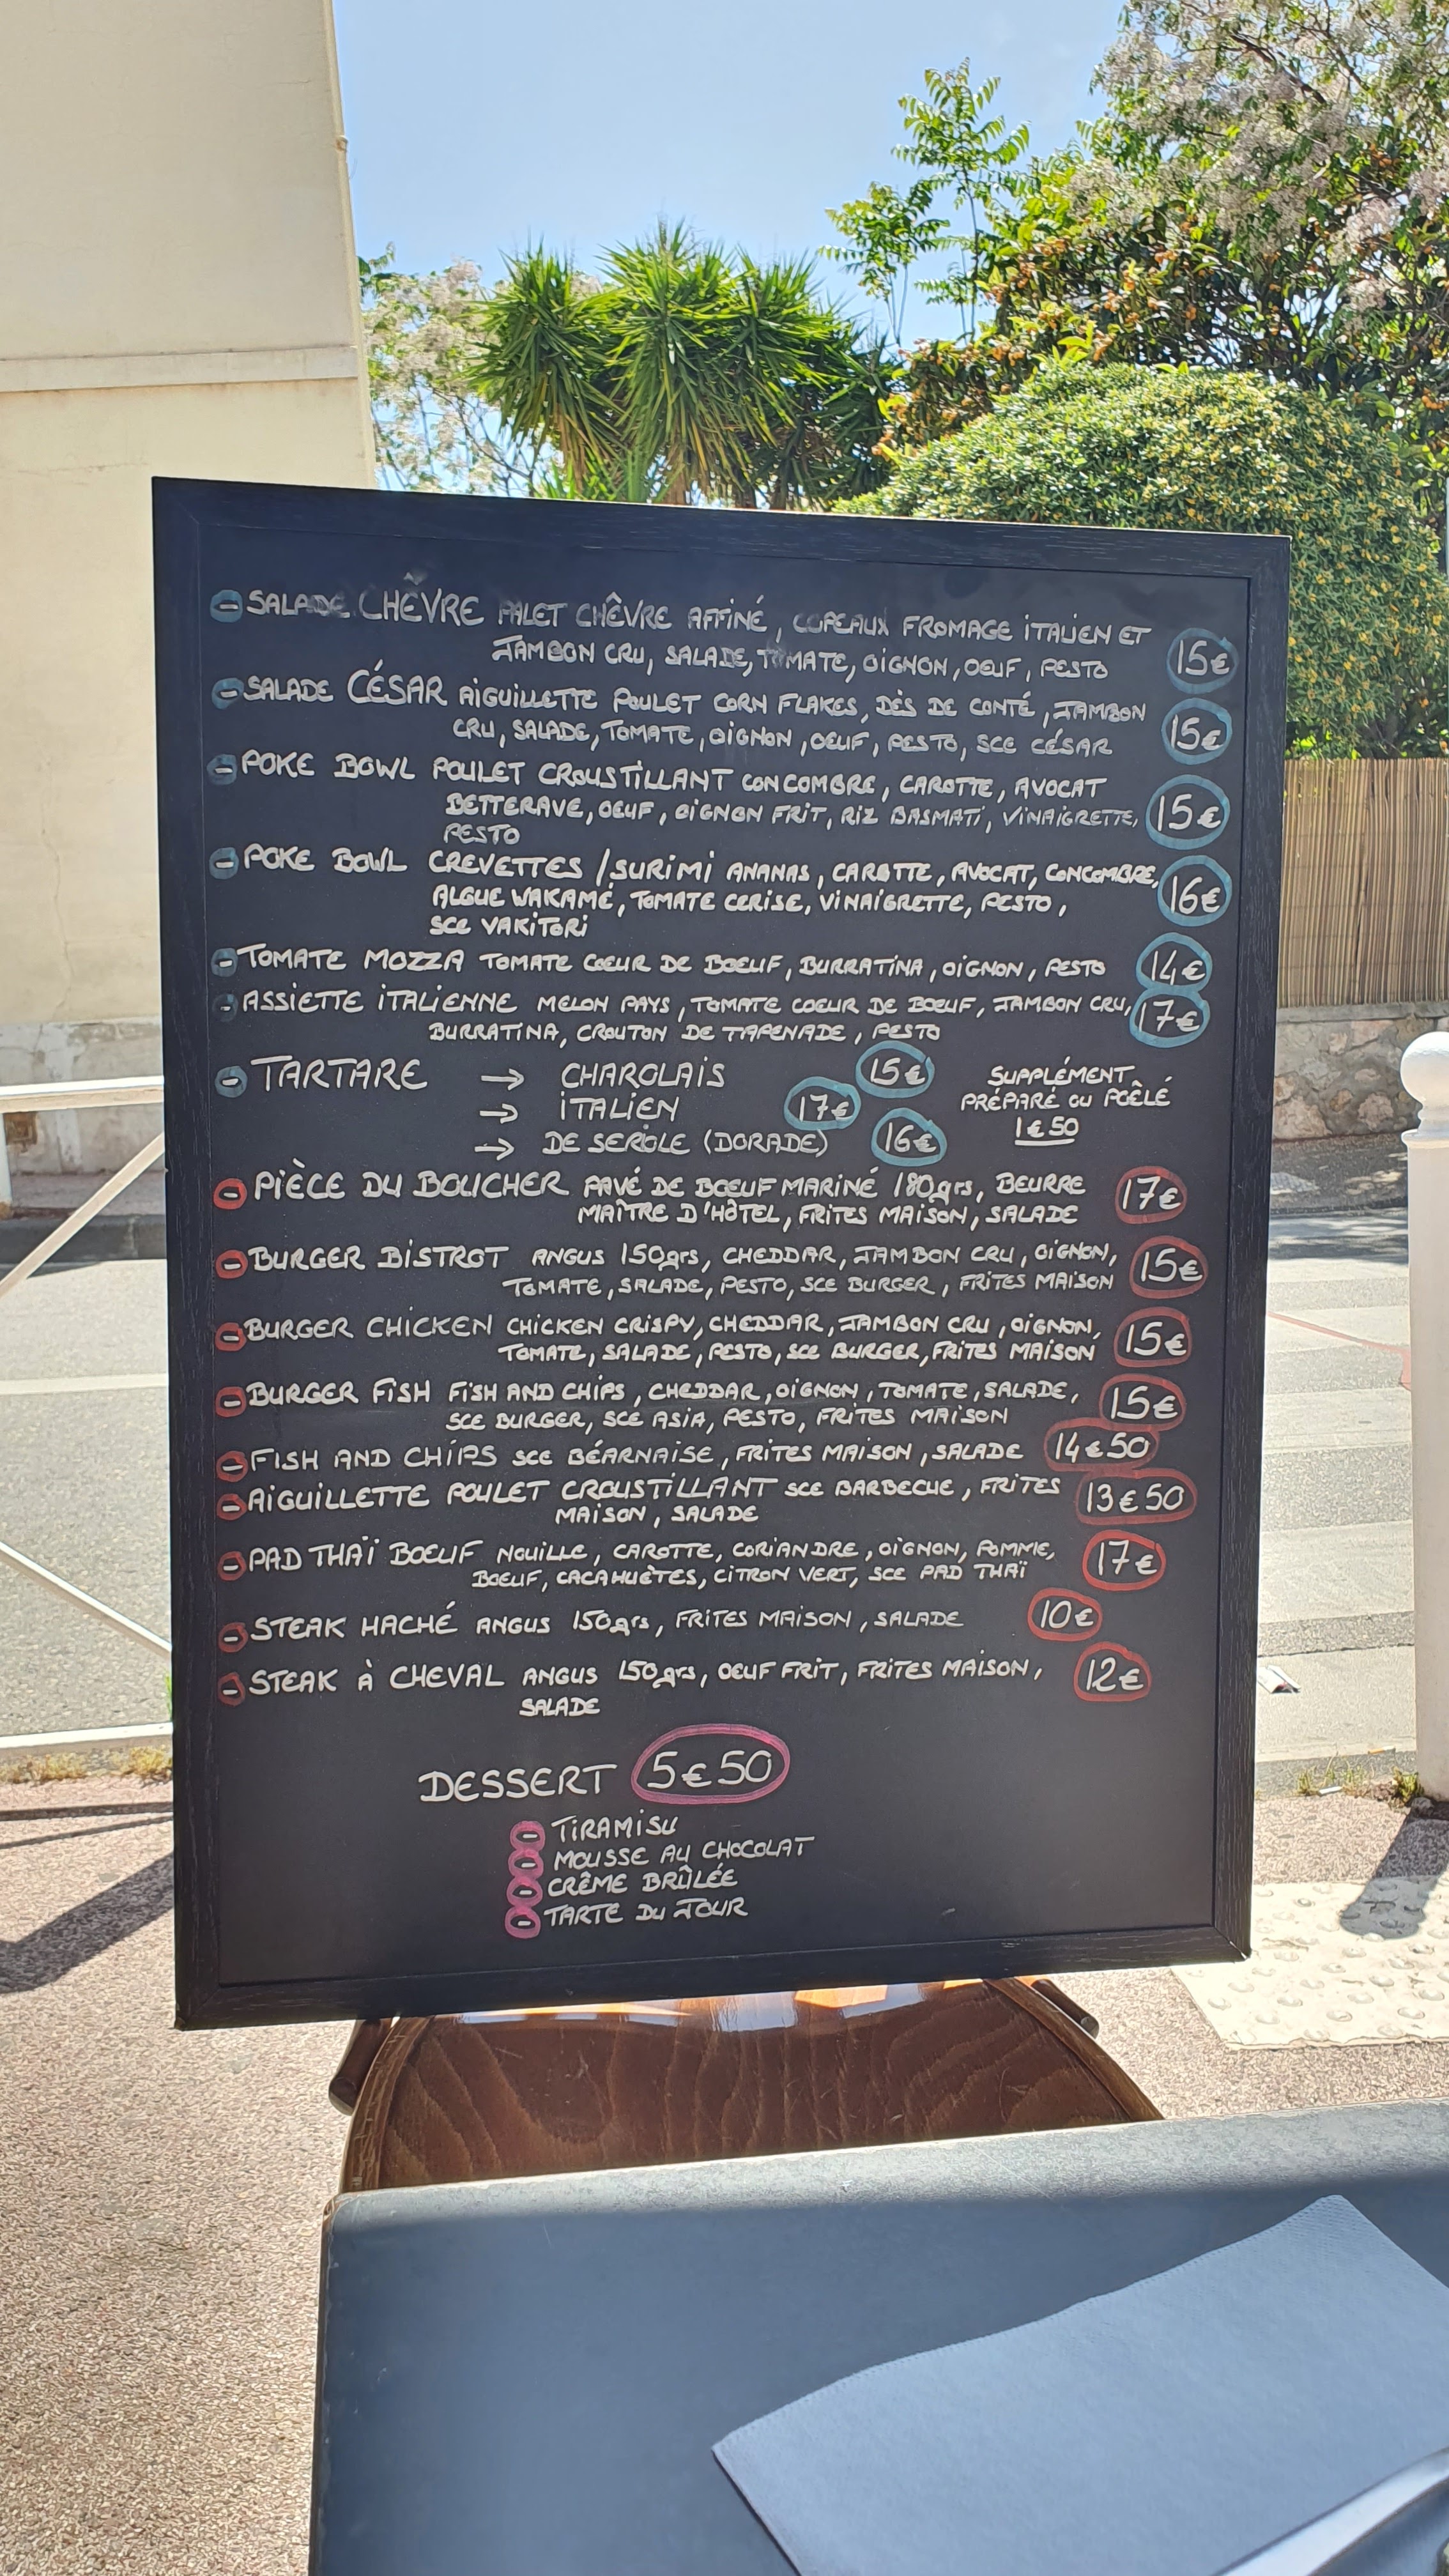 - SALADE CHÊVRE PALET CHÊVRE AFFINÉ, COPEAUX FROMAGE ITALIEN ET
JAMBON CRU, SALADE, TOMATE, OIGNON, OEUF, PESTO 15€
- SALADE CÉSAR AIGUILLETTE POULET CORN FLAKES, DÈS DE CONTÉ, JAMBON
CRU, SALADE, TOMATE, OIGNON, OEUF, PESTO, SCE CÉSAR 15€
- POKE BOWL POULET CROUSTILLANT CONCOMBRE, CAROTTE, AVOCAT
BETTERAVE, OEUF, OIGNON FRIT, RIZ BASMATI, VINAIGRETTE, 15€
PESTO
- POKE BOWL CREVETTES / SURIMI ANANAS, CAROTTE, AVOCAT, CONCOMBRE,
ALGUE WAKAMÉ, TOMATE CERISE, VINAIGRETTE, PESTO, 16€
SCE YAKITORI
- TOMATE MOZZA TOMATE COEUR DE BOEUF, BURRATINA, OIGNON, PESTO 14€
- ASSIETTE ITALIENNE MELON PAYS, TOMATE COEUR DE BOEUF, JAMBON CRU, 17€
BURRATINA, CROUTON DE TAPENADE, PESTO
- TARTARE → CHAROLAIS 15€
→ ITALIEN 17€
→ DE SERGLE (DORADE) 16€
SUPPLÉMENT
PRÉPARÉ OU POÊLÉ
1€50
- PIÈCE DU BOUCHER PAVÉ DE BOEUF MARINÉ 180grs, BEURRE 17€
MAÎTRE D'HÔTEL, FRITES MAISON, SALADE
- BURGER BISTROT ANGUS 150grs, CHEDDAR, JAMBON CRU, OIGNON, 15€
TOMATE, SALADE, PESTO, SCE BURGER, FRITES MAISON
- BURGER CHICKEN CHICKEN CRISPY, CHEDDAR, JAMBON CRU, OIGNON, 15€
TOMATE, SALADE, PESTO, SCE BURGER, FRITES MAISON
- BURGER FISH FISH AND CHIPS, CHEDDAR, OIGNON, TOMATE, SALADE, 15€
SCE BURGER, SCE ASIA, PESTO, FRITES MAISON
- FISH AND CHIPS SCE BÉARNAISE, FRITES MAISON, SALADE 14€50
- AIGUILLETTE POULET CROUSTILLANT SCE BARBECUE, FRITES 13€50
MAISON, SALADE
- PAD THAÏ BOEUF NOUILLE, CAROTTE, CORIANDRE, OIGNON, POMME, 17€
BOEUF, CACAHUÈTES, CITRON VERT, SCE PAD THAÏ
- STEAK HACHÉ ANGUS 150grs, FRITES MAISON, SALADE 10€
- STEAK À CHEVAL ANGUS 150grs, OEUF FRIT, FRITES MAISON, 12€
SALADE
DESSERT 5€50
- TIRAMISU
- MOUSSE AU CHOCOLAT
- CRÊME BRÛLÉE
- TARTE DU JOUR